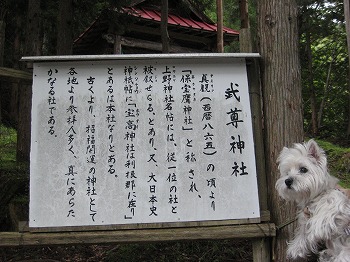 武尊神社
貞観(西暦八六五)の頃より
「保宝鷹神社」と称され、
上野神社名帖には、従一位の社と
被叙せらる、とあり、又、大日本史
神祇帖に「宝高神社は利根郡に座り」
とあるは本社なりとある。
古くより、招福開運の神社として
各地より参拝人多く、真にあらた
かなる社である。